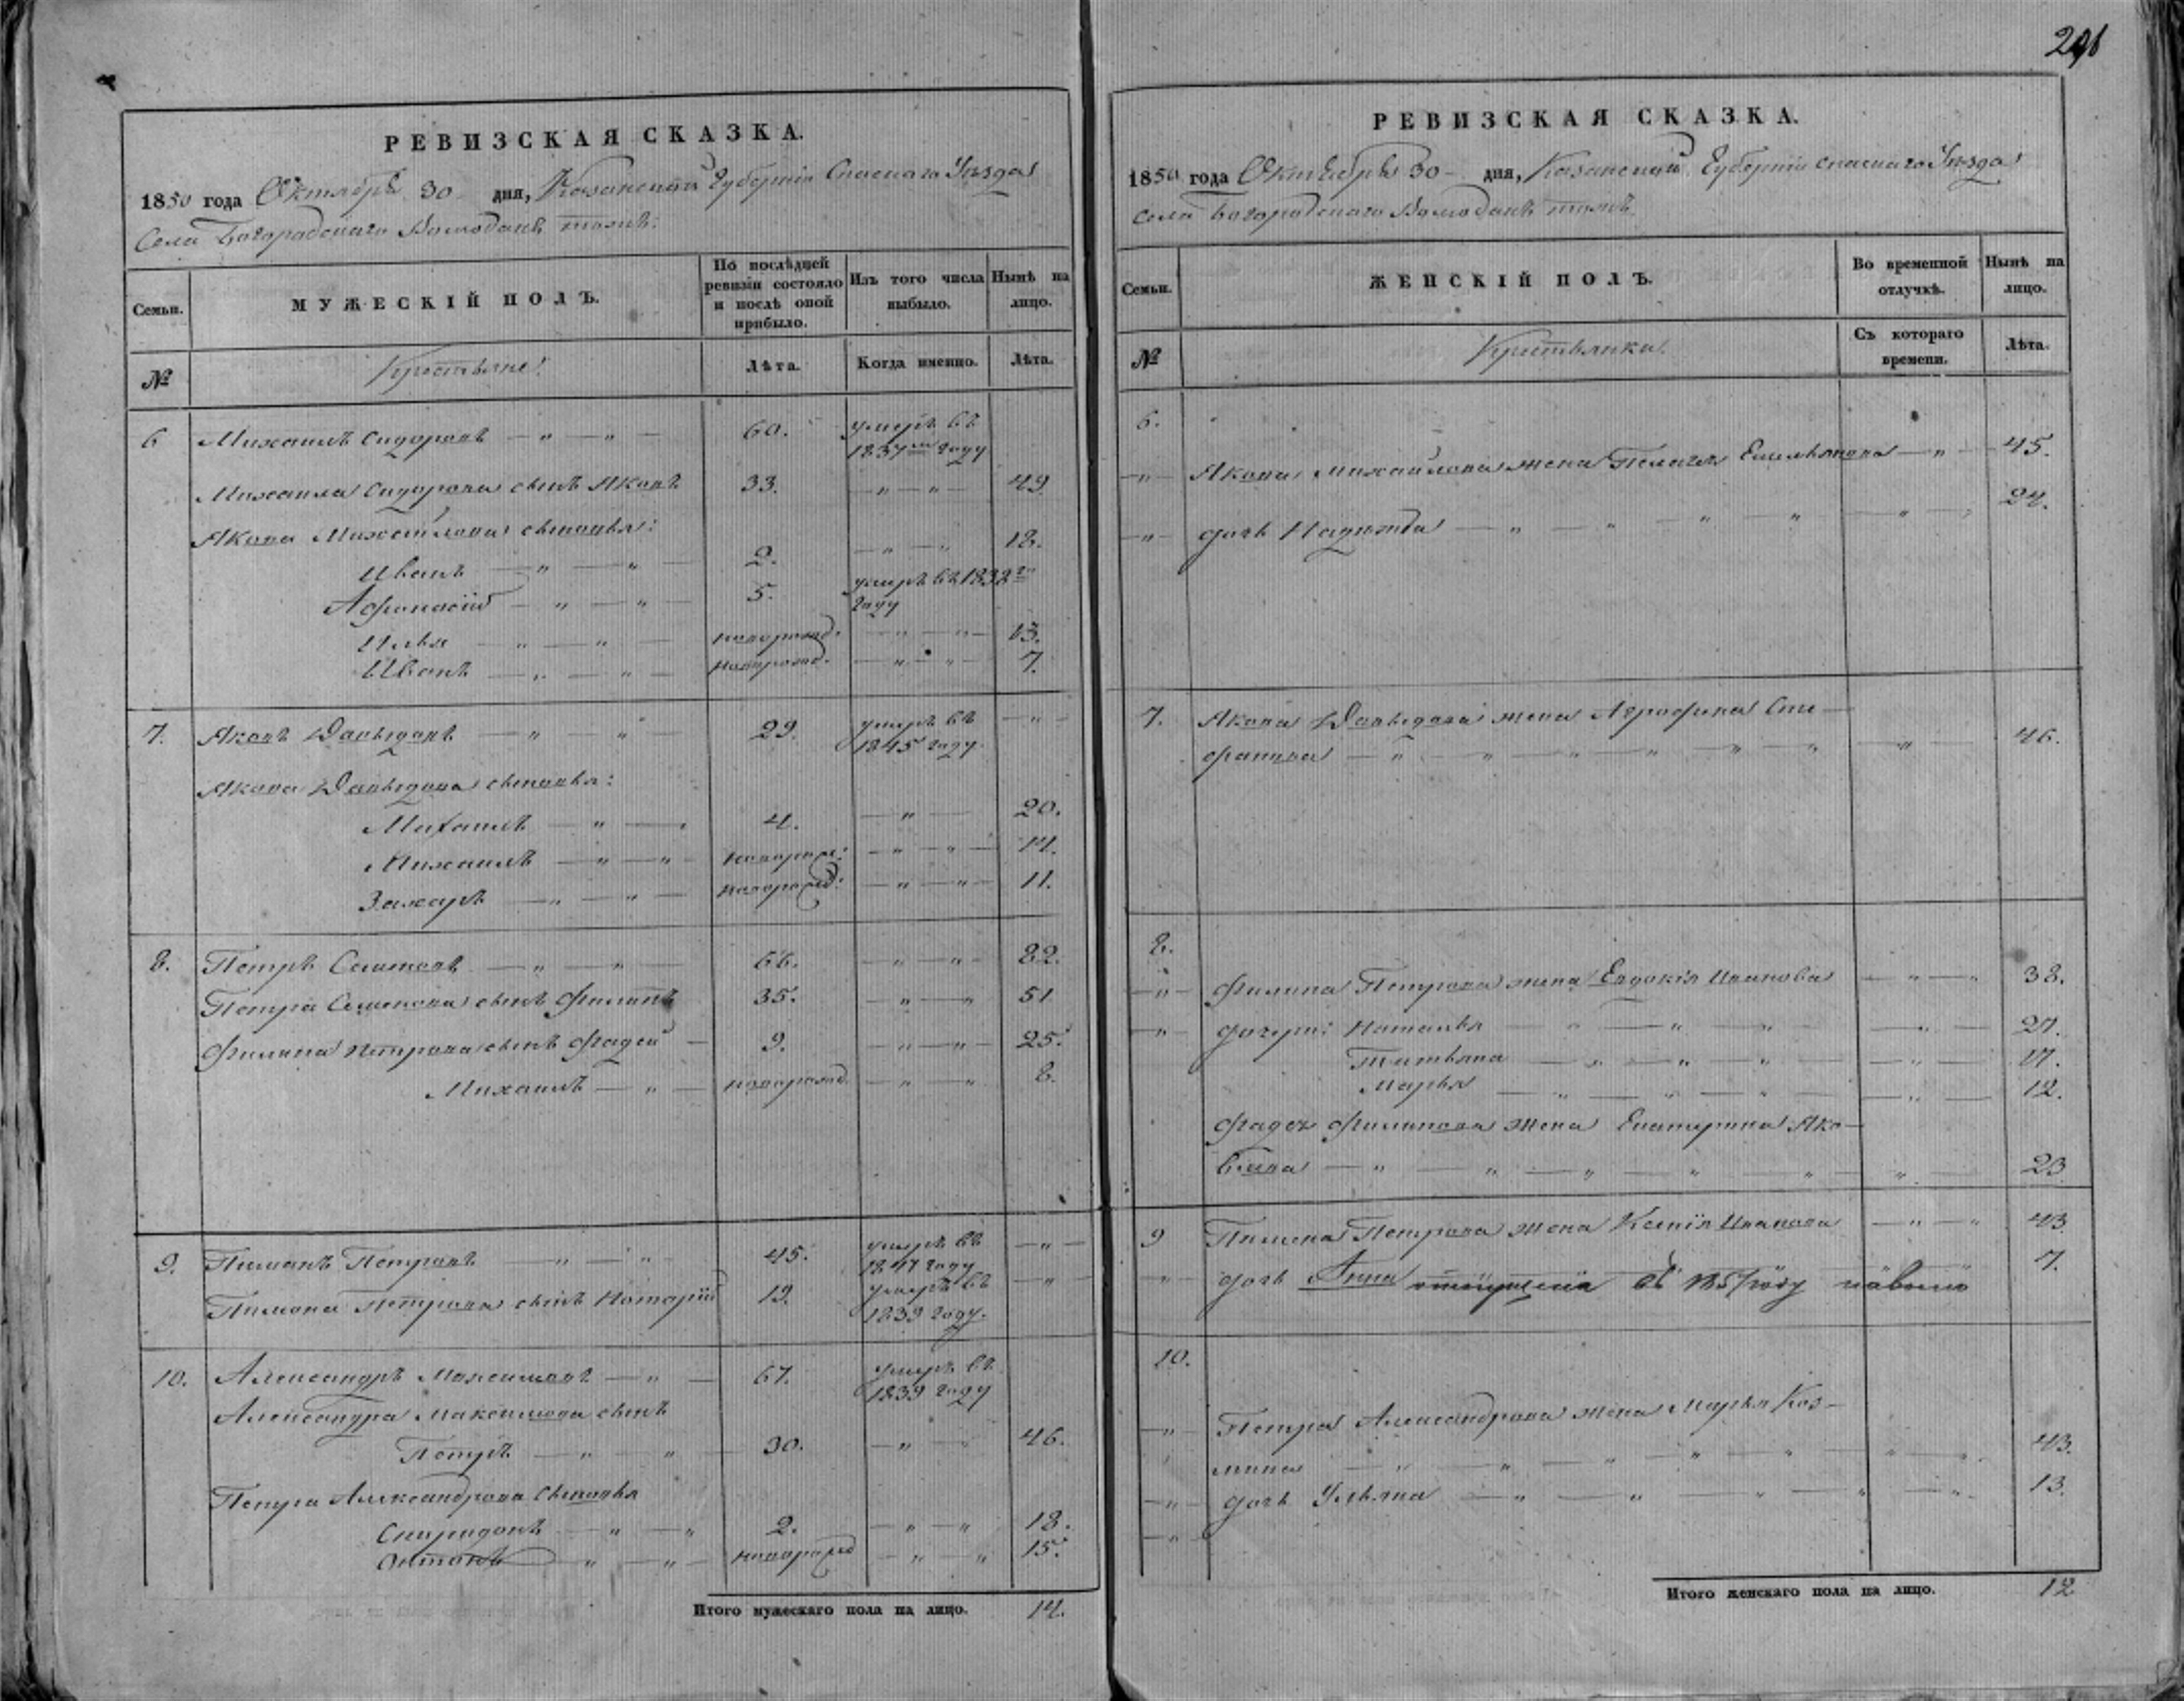 291
РЕВИЗСКАЯ СКАЗКА.
1850 года Октября 30 дня, Казанской Губерніи Спаскаго Уѣзда
Села Богородскаго тожъ.
Семьи.
МУЖЕСКІЙ ПОЛЪ.
По послѣдней ревизіи состояло и послѣ оной прибыло.
Изъ того числа выбыло.
Нынѣ на лицо.
№
Крестьяне:
Лѣта.
Когда именно.
Лѣта.
6 Михаилъ Сидоровъ — " — " — 60. умеръ въ
1837м году
Михаила Сидорова сынъ Яковъ 33. — " — " — 49
Якова Михайлова сыновья:
Иванъ — " — " — 2. — " — " 18.
Афонасій — " — " — 5. умеръ въ 1832м
году
Илья — " — " — новорожд. — " — " — 13.
Иванъ — " — " — новорожд. — " — " — 7.
7. Яковъ Давыдовъ — " — " 29. умеръ въ — " —
1845 году.
Якова Давыдова сыновья:
Михаилъ — " — 4. — " — 20.
Михаилъ — " — " новорож: — " — " — 14.
Захаръ — " — " — новорожд: — " — " — 11.
8. Петръ Семеновъ — " — " — 66. — " — " — 82.
Петра Семенова сынъ Филипъ 35. — " — " 51
Филипа Петрова сынъ Фадей — 9. — " — " — 25.
Михаилъ — " — новорожд. — " — " 8.
9. Пимонъ Петровъ — " — " 45. умеръ въ — " —
1847 году
Пимона Петрова сынъ 19. умеръ въ — " —
1839 году.
10. Александръ Максимовъ — " — 67. умеръ въ
1839 году
Александра Максимова сынъ
Петръ — " — " — 30. — " — 46.
Петра Александрова сыновья
Спиридонъ — " — " 2. — " — " 18.
Антонъ — " — " — новорожд — " — " 15.
Итого мужескаго пола на лицо. 14.
РЕВИЗСКАЯ СКАЗКА.
1850 года Октября 30 — дня, Казанской Губерніи Спаскаго Уѣзда
Села Богородскаго тожъ.
Семьи.
ЖЕНСКІЙ ПОЛЪ.
Во временной отлучкѣ.
Нынѣ на лицо.
№
Крестьянки.
Съ котораго времени.
Лѣта.
6.
— " — Якова Михайлова жена Пелагея Емельянова — " — 45.
— " — дочь Надежда — " — " — " — " — " — 24.
7. Якова Давыдова жена Аграфена Сте-
фанова — " — " — " — " — " — " — " — 46.
8.
— " — Филипа Петрова жена Евдокія Иванова — " — " 38.
" — дочери: Наталья — " — " — " — " — 21.
Татьяна — " — " — " — " — 17.
Марья — " — " — " — " — 12.
Фадея Филипова жена Екатерина Яко-
влева — " — " — " — " — " — " 23
9 Пимона Петрова жена Ксенія Иванова — " — " 43
— " — дочь Анна 7.
10.
— " — Петра Александрова жена Марья Коз-
мина — " — " — " — " — " — " — " 43.
— " — дочь Ульяна — " — " — " — " — " 13.
— " —
Итого женскаго пола на лицо. 12